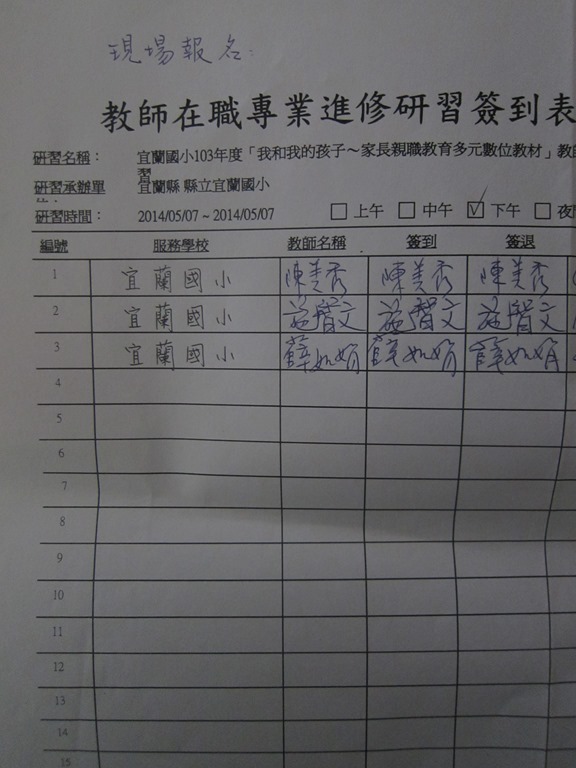 現場報名:
教師在職專業進修研習簽到表
研習名稱: 宜蘭國小103年度「我和我的孩子～家長親職教育多元數位教材」教
習
研習承辦單 宜蘭縣 縣立宜蘭國小
研習時間: 2014/05/07 ~ 2014/05/07 上午 中午 下午 夜
編號 服務學校 教師名稱 簽到 簽退
1 宜蘭國小 陳美秀 陳美秀 陳美秀
2 宜蘭國小 施智文 施智文 施智文
3 宜蘭國小 薛如娟 薛如娟 薛如娟
4
5
6
7
8
9
10
11
12
13
14
15